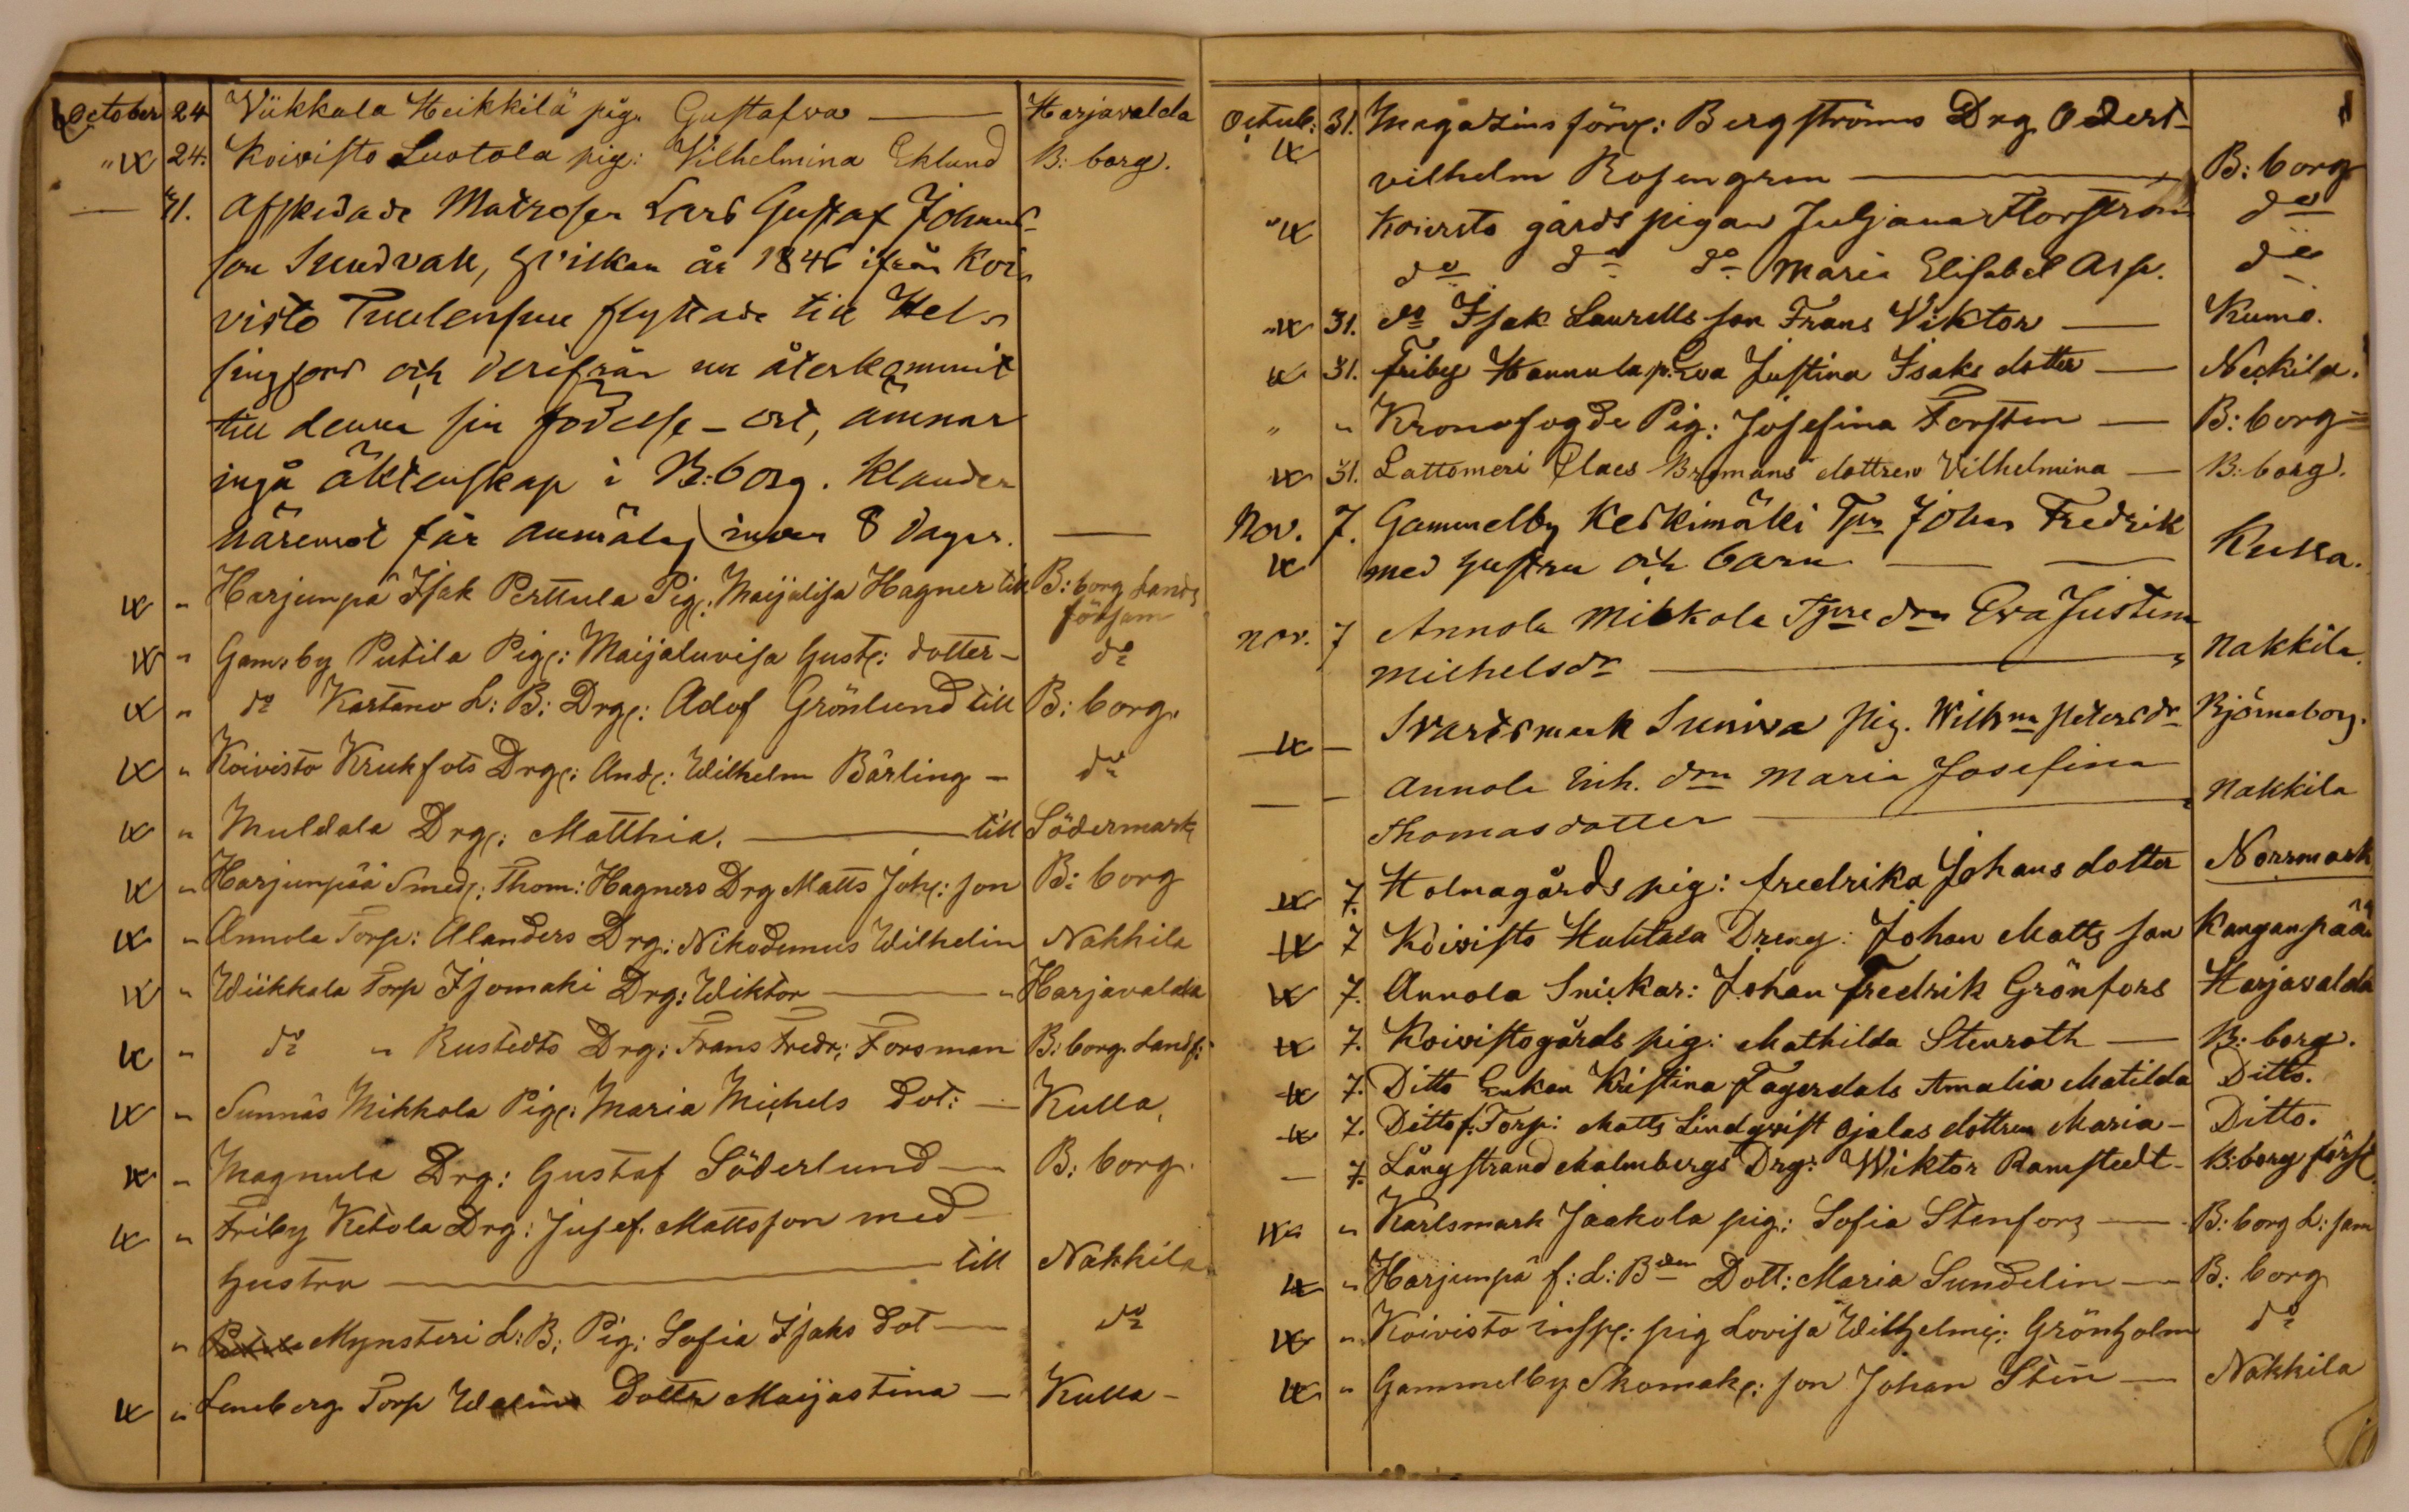 October 24 Viikkala Heikkilä pig. Gustafva — Harjavalda
" 24. Koivisto Luotola pig: Vilhelmina Eklund B: borg.
— 31. Afskedade Matrosen Lars Gustaf Johans-
son Sundvall, hvilken år 1846 ifrån Koi-
visto Tuulensuu flyttade till Hel-
singfors och derifrån nu återkommit
till denna sin födelse-ort, ämnar
ingå äktenskap i B:borg. Klander
häremot får anmälas inom 8 dagar. —
" Harjunpä Isak Perttula Pig: Maijalisa Hagner till B: borg Lands
församl
" Gam:by Putila Pig: Maijaluvisa Gust: dotter — do
" do Kastano L: B: Drg: Adof Grönlund till B: borg.
" Koivisto Krukfots Drg: And: Wilhelm Bärling — do
" Muldala Drg: Matthia. — till Södermark
" Harjunpää Smed: Thom: Hagners Drg Matts Joh: son B: borg
" Annola Torp: Alanders Drg: Nikodemus Wilhelm Nakkila
" Wiikkala Torp Isomaki Drg: Wiktor — " Harjavalda
" do " Rustedts Drg: Frans Fredr: Forsman B: borg. Landsf:
" Sunnäs Mikkola Pig: Maria Michels Dot: — Kulla.
" Magnula Drg: Gustaf Söderlund — B: borg.
" Friby Ketola Drg: Jusef. Mattsson med
hustru — till Nakkila
" Mynsteri L: B: Pig: Sofia Isaks Dot — do
" Leneberg Torp Dottr Maijastina — Kulla —
Octub: 31. Magazins förv: Bergströms Drg. Odert
vilhelm Rosengren — B: borg
" Koivisto gårds pigan Juljana Florström do
do do do Maria Elisabet Asp. do
" 31. do Isak Laurells son Frans Viktor — Kumo.
31. Friby Hannula p. Eva Justina Isaks dotter — Neckila.
" " Kronofogde Pig: Josefina Forsten — B: borg
31. Lattomeri Claes Bromans dottren Vilhelmina — B: borg.
Nov. 7. Gammelby Keskimäki Tpr Johan Fredrik
med hustru och barn — — Kulla.
Nov. 7 Annola Mikkola Tpre drn Eva Justina
Michelsdr — " Nakkila.
— Svartsmark Suniva Pig. Wilhna Petersdr Björneborg.
— — Annola Inh. drn Maria Josefina
Thomasdotter — " Nakkila
7. Holmagårds pig: fredrika Johans dotter Norrmark
7 Koivisto Huhtala Dreng: Johan Matts son Kanganpää
7. Annola Snickar: Johan Fredrik Grönfors Harjavalda
7. Koivistogårds pig: Mathilda Stenroth — B: borg.
7. Ditto Enkan Kristina Fagerdals Amalia Matilda Ditto.
7. Ditto f: Torp: Matts Lindqvist Ojalas dottren Maria — Ditto.
— 7. Långstrand Malmbergs Drg: Wiktor Ramstedt — B:borg förs
" Karlsmark Jaakola pig: Sofia Stenfors — B: borg L: fam
" Harjunpä f: L: Bden Dott: Maria Sundelin — B: borg
" Koivisto insp: pig Lovisa Wilhelmi: Grönholm do
" Gammelby Skomak: son Johan Stén — Nakkila